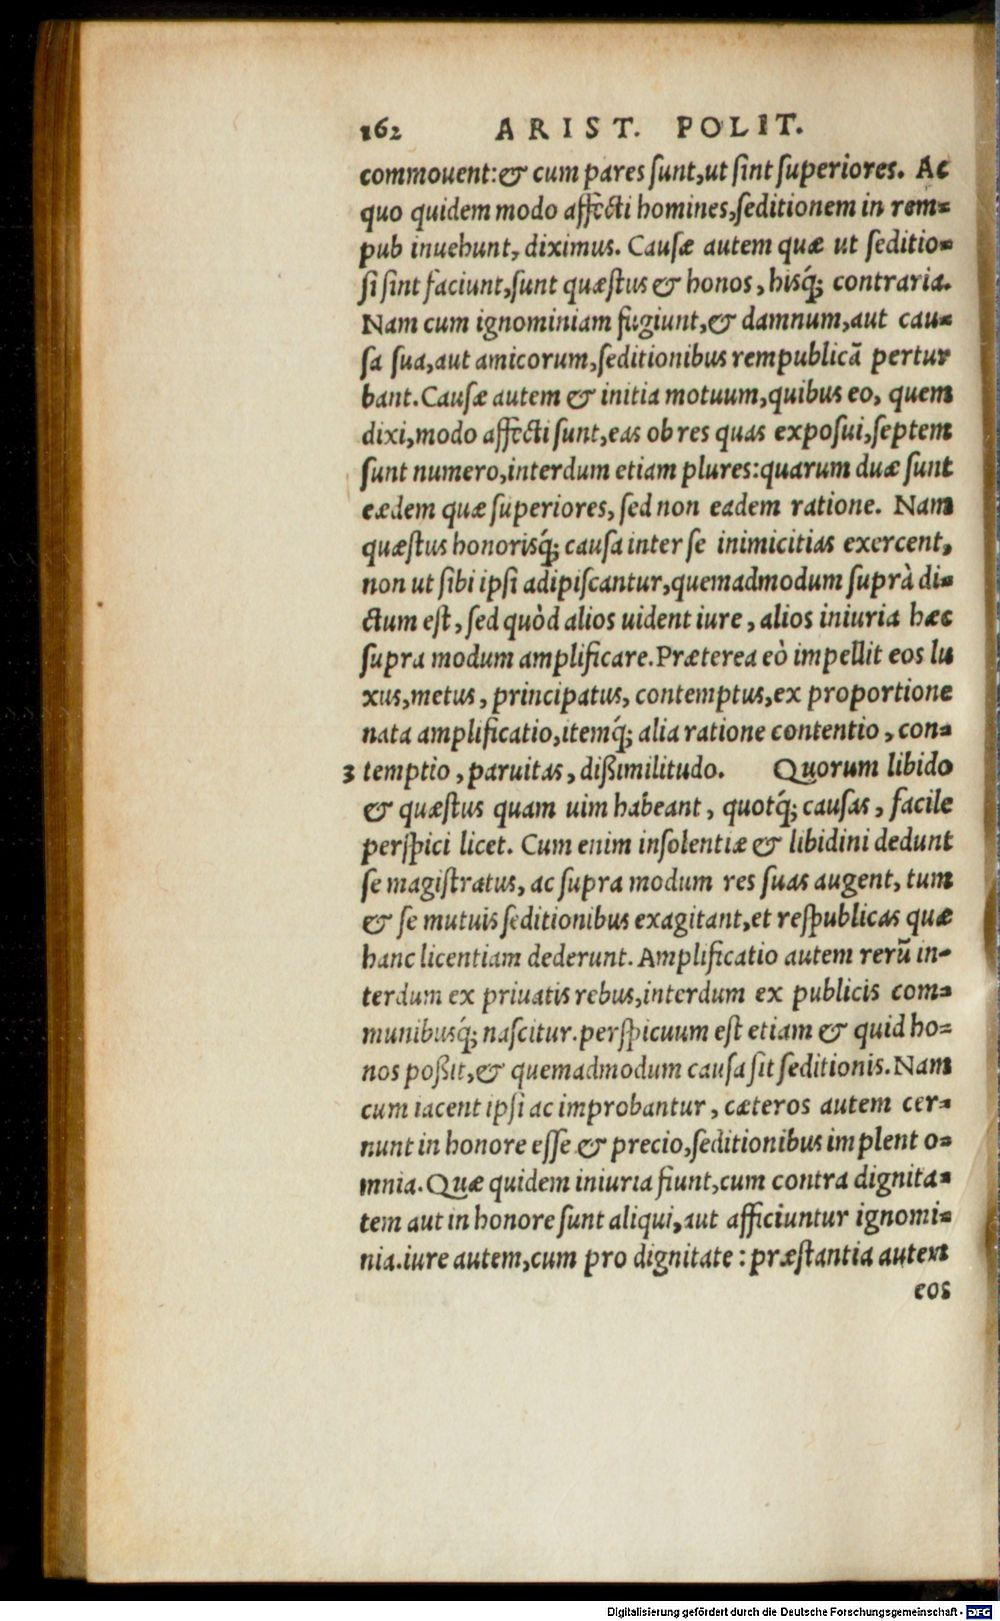 162 ARIST. POLIT.
commouent:& cum pares ſunt,ut ſint ſuperiores. Ac
quo quidem modo affecti homines,ſeditionem in rem=
pub inuehunt, diximus. Cauſæ autem quæ ut ſeditio=
ſi ſint faciunt,ſunt quæſtus & honos, hisq́; contraria.
Nam cum ignominiam fugiunt,& damnum,aut cau=
ſa ſua,aut amicorum,ſeditionibus rempublicã pertur
bant. Cauſæ autem & initia motuum,quibus eo, quem
dixi,modo affecti ſunt,eas ob res quas expoſui,ſeptem
ſunt numero,interdum etiam plures:quarum duæ ſunt
eædem quæ ſuperiores, ſed non eadem ratione. Nam
quæſtus honorisq́; cauſa inter ſe inimicitias exercent,
non ut ſibi ipſi adipiſcantur,quemadmodum ſuprà di=
ctum eſt, ſed quòd alios uident iure, alios iniuria hæc
ſupra modum amplificare. Præterea eò impellit eos lu
xus,metus, principatus, contemptus,ex proportione
nata amplificatio,itemq́; alia ratione contentio, con=
3 temptio, paruitas, dißimilitudo. Quorum libido
& quæſtus quam uim habeant, quotq́; cauſas, facile
perſpici licet. Cum enim inſolentiæ & libidini dedunt
ſe magiſtratus, ac ſupra modum res ſuas augent, tum
& ſe mutuis ſeditionibus exagitant,et reſpublicas quæ
hanc licentiam dederunt. Amplificatio autem rerũ in-
terdum ex priuatis rebus,interdum ex publicis com=
munibusq́; naſcitur. perſpicuum eſt etiam & quid ho=
nos poßit,& quemadmodum cauſa ſit ſeditionis. Nam
cum iacent ipſi ac improbantur, cæteros autem cer=
nunt in honore eſſe & precio,ſeditionibus implent o=
mnia. Quæ quidem iniuria fiunt,cum contra dignita=
tem aut in honore ſunt aliqui,aut afficiuntur ignomi=
nia.iure autem,cum pro dignitate: præſtantia autem
eos
Digitalisierung gefördert durch die Deutsche Forschungsgemeinschaft - DFG